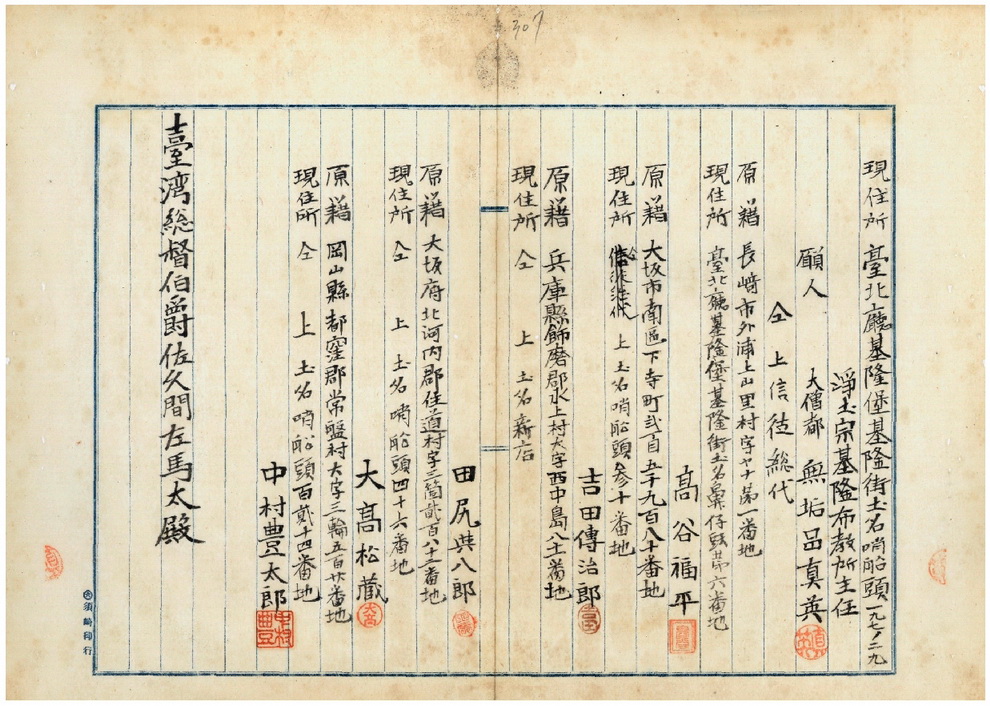 307
現住所 臺北廳基隆堡基隆街土名哨舩頭一九七ノ二九
淨土宗基隆布教所主任
願人 大僧都 無垢品真英
仝 上信徒総代
原籍 長﨑市外浦上山里村字ヤ十第一番地
現住所 臺北廳基隆堡基隆街土名鼻仔頭第六番地
髙谷福平
原籍 大坂市南區下寺町弐百五十九百八十番地
現住所 仝 上土名哨舩頭参十番地
吉田傳治郎
原籍 兵庫縣飾磨郡水上村大字西中島八十番地
現住所 仝 上 土名新店
田尻與八郎
原籍 大坂府北河内郡住道村字三箇貳百八十三番地
現住所 仝 上 土名哨舩頭四十六番地
大髙松蔵
原籍 岡山縣都窪郡常盤村大字三輪五百廿番地
現住所 仝 上 土名哨舩頭百貳十四番地
中村豊太郎
臺湾総督伯爵佐久間左馬太殿
須﨑印行